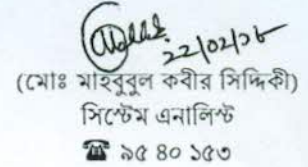 22/02/১৮
(মোঃ মাহবুবুল কবীর সিদ্দিকী)
সিস্টেম এনালিস্ট
☎ ৯৫ ৪০ ১৫৩